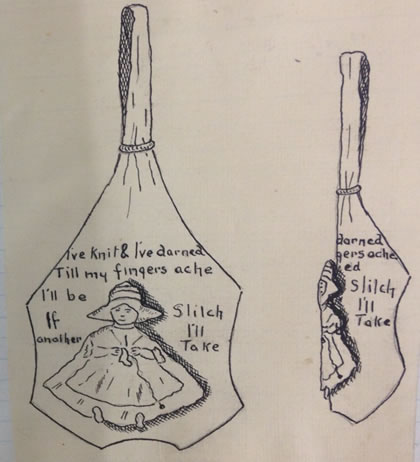 I've Knit & I've darned
Till my fingers ache
I'll be
If
another
Stitch
I'll
Take
darned
gers ache
ed
Stitch
I'll
Take